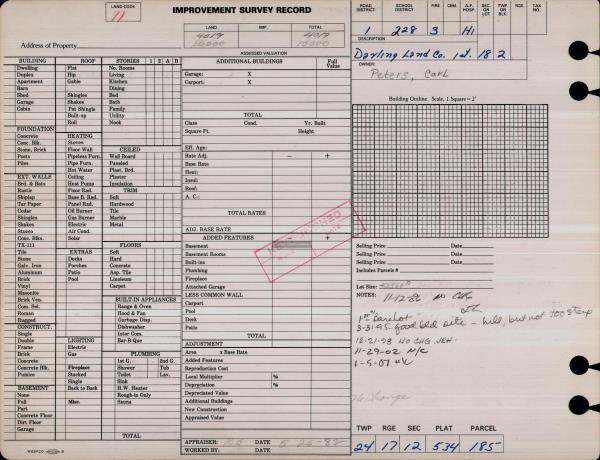 LAND CODE
11
IMPROVEMENT SURVEY RECORD
LAND IMP. TOTAL
4019 4019
10,000 10,000
Address of Property
ASSESSED VALUATION
ROAD DISTRICT SCHOOL DISTRICT FIRE A.P. HOSP. SEC OR LOT TWP OR BLK. RGE TAX NO.
1 228 3 Hi
DESCRIPTION
Darling Land Co. 1st. 18 2
OWNER:
Peters, Carl
BUILDING ROOF STORIES 1 2 A B
Dwelling Flat No. Rooms
Duplex Hip Living
Apartment Gable Kitchen
Barn Dining
Shed Shingles Bed
Garage Shakes Bath
Cabin Pat Shingle Family
Built-up Utility
Roll Nook
FOUNDATION
Concrete HEATING
Conc. Blk. Stoves
Stone, Brick Floor-Wall CEILED
Posts Pipeless Furn. Wall Board
Piles Pipe Furn. Paneled
Hot Water Plast. Brd.
EXT. WALLS Ceiling Plaster
Brd. & Bats Heat Pump Insulation
Rustic Floor Rad. TRIM
Shiplap Base B. Rad. Soft
Tar Paper Panel Rad. Hardwood
Cedar Oil Burner Tile
Shingles Gas Burner Marble
Shakes Electric Metal
Stucco Air Cond.
Conc. Blks. Solar
TX-111 FLOORS
Tile EXTRAS Soft
Stone Decks Hard
Galv. Iron Porches Concrete
Aluminum Patio Asp. Tile
Brick Pool Linoleum
Vinyl Carpet
Masonite
Brick Ven.
Com. Sel. BUILT-IN APPLIANCES
Roman Range & Oven
Ragged Hood & Fan
Garbage Disp.
CONSTRUCT. Dishwasher
Single Inter Com.
Double LIGHTING Bar-B-Que
Frame Electric
Brick Gas PLUMBING
Concrete 1st G. 2nd G.
Concrete Blk. Fireplace Shower Tub
Pumice Stacked Toilet Lav.
Single Sink
BASEMENT Back to Back H.W. Heater
None Rough-in Only
Full Misc. Sauna
Part
Concrete Floor
Dirt Floor
Garage
TOTAL
ADDITIONAL BUILDINGS Full Value
Garage: X
Carport: X
TOTAL
Class Cond. Yr. Built
Square Ft. Height
Eff. Age:
Rate Adj. – +
Base Rate
Heat:
Insul:
Roof:
A. C.:
TOTAL RATES
ADJ. BASE RATE
ADDED FEATURES +
Basement
Basement Rooms
Built-ins
Plumbing
Fireplace
Attached Garage
LESS COMMON WALL
Carport
Pool
Deck
Patio
TOTAL
ADJUSTMENT
Area x Base Rate
Added Features
Reproduction Cost
Local Multiplier %
Depreciation %
Depreciated Value
Additional Buildings
New Construction
Appraised Value
APPRAISER: DATE 5-26-82
WORKED BY: DATE
Building Outline. Scale, 1 Square = 2'
Selling Price Date
Selling Price Date
Selling Price Date
Includes Parcels #
Lot Size:
NOTES: 11-12-86
3-31-95 good bld site - hill, but not too steep
12-21-98 NO CHG
11-29-02 N/C
1-5-07 N/C
TWP RGE SEC PLAT PARCEL
24 17 12 534 185